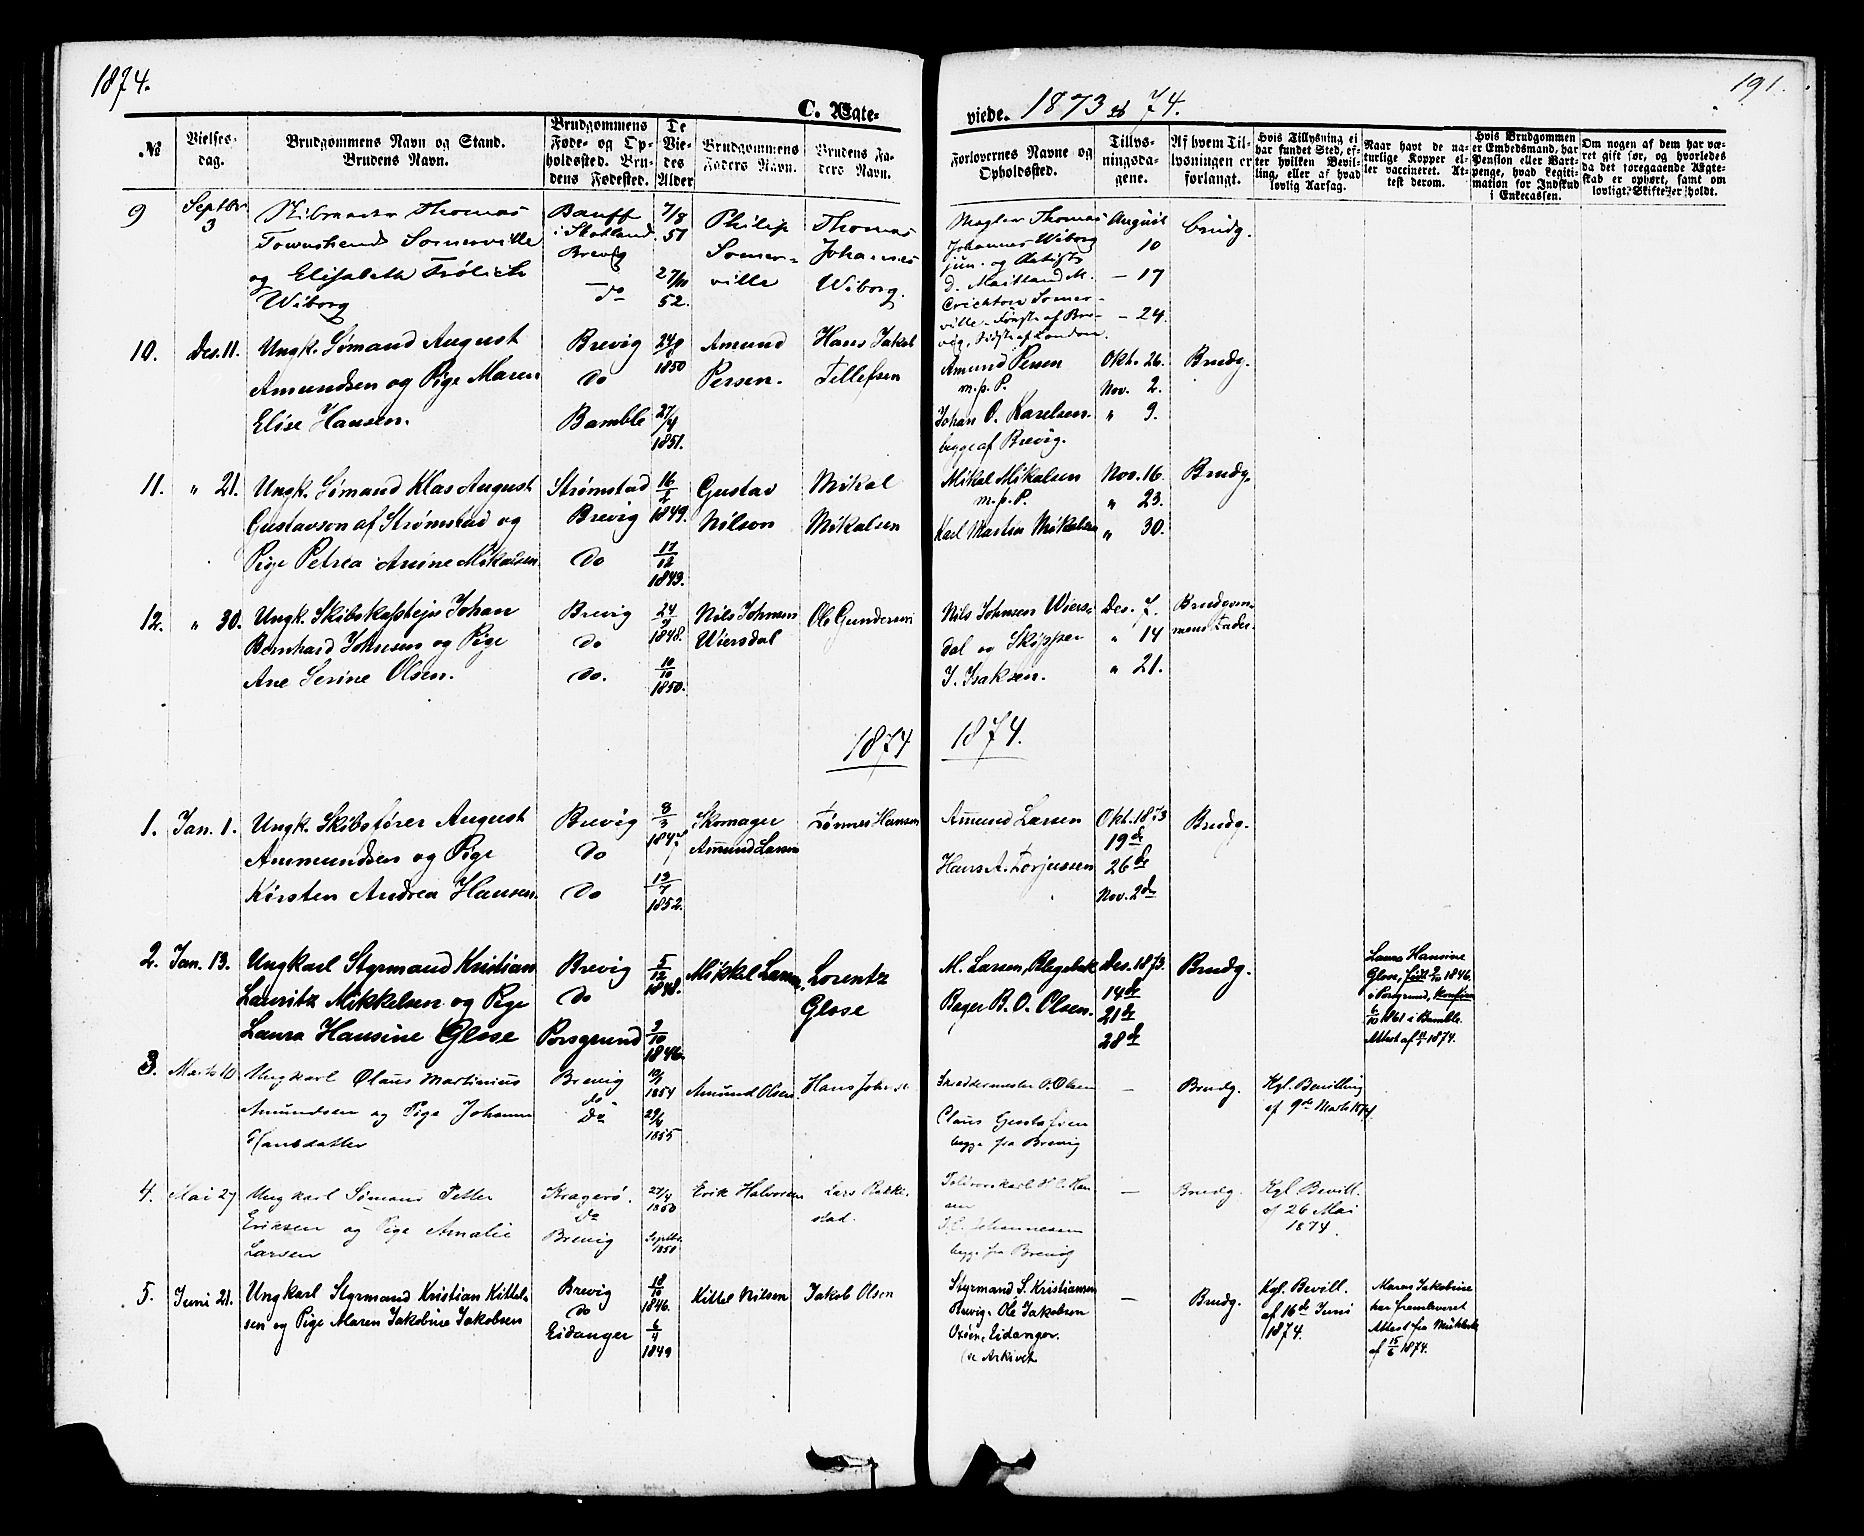 1874.
191.
C. Ægte-
viede. 1873 & 74.
№
Vielses-
dag.
Brudgommens Navn og Stand.
Brudens Navn.
Brudgommens
Føde- og Op-
holdssted. Bru-
dens Fødested.
De
Vie-
des
Alder
Brudgommens
Faders Navn.
Brudens Fa-
ders Navn.
Forlovernes Navne og
Opholdssted.
Tillys-
ningsda-
gene.
Af hvem Til-
lysningen er
forlangt.
Hvis Tillysning ei
har fundet Sted, ef-
ter hvilken Bevil-
ling, eller af hvad
lovlig Aarsag.
Naar havt de na-
turlige Kopper el-
ler vaccineret. At-
test derom.
Hvis Brudgommen
er Embedsmand, har
Pension eller Vart-
penge, hvad Legiti-
mation for Indskud
i Enkecassen.
Om nogen af dem har væ-
ret gift før, og hvorledes
da det foregaaende Ægte-
skab er ophørt, samt om
lovligt Skifte er holdt.
9
Septbr.
3
Thomas
Townshend Somerville
og Elisabeth Frölich
Wiborg
Banff
i Skotland.
Brevig
do
7/8
51
27/10
52.
Philip
Somer-
ville
Thomas
Johannes
Wiborg.
Mægler Thomas
Johannes Wiborg
jun. og
D. Maitland M.
Crichton Somer-
ville, Første af Bre-
vig, sidste af London.
August
10
— 17
— 24.
Brudg.
10.
Des. 11.
Ungk. Sømand August
Amundsen og Pige Maren
Elise Hansen.
Brevig
do
Bamble
24/8
1850
27/4
1851.
Amund
Persen.
Hans Jakob
Tellefsen
Amund Persen
m. p. P.
Johan O. Karelsen.
begge af Brevig.
Okt. 26.
Nov. 2.
" 9.
Brudg.
11.
" 21.
Ungk. Sømand Klas August
Gustavson af Strømstad og
Pige Petrea Anine Mikalsen.
Strømstad
Brevig
do
16/2
1849.
17/12
1849.
Gustav
Nilson
Mikal
Mikalsen
Mikal Mikalsen
m. p. P.
Karl Martin Mikalsen
Nov. 16.
" 23.
" 30.
Brudg.
12.
" 30.
Ungk. Skibskaptejn Johan
Bernhard Johnsen og Pige
Ane Serine Olsen.
Brevig
do
do.
24/9
1848.
10/10
1850.
Nils Johnsen
Wiersdal
Ole Gundersen
Nils Johnsen Wiers-
dal og Skipper
I. Isaksen.
Des. 7.
" 14
" 21.
1874
1874.
1.
Jan. 1.
Ungk. Skibsfører August
Ammundsen og Pige
Kirsten Andrea Hansen.
Brevig
do
do
8/3
1847
13/7
1852.
Skomager
Amund Larsen
Tönnes Hansen
Amund Larsen
Hans A. Torjussen
Okt. 1873
19de
26de
Nov. 2de
Brudg.
2.
Jan. 13.
Ungkarl Styrmand Kristian
Lauritz Mikkelsen og Pige
Laura Hansine Glose
Brevig
do
Porsgrund
5/12
1848.
2/10
1846.
Mikkel Larsen.
Lorentz
Glose
M. Larsen,
Bager B. O. Olsen.
Des. 1873.
14de
21de
28de
Brudg.
Laura Hansine
Glose, født 2/10 1846.
i Porsgrund, Konfirm
6/10 1861 i Bamble.
Attest af 1874.
3.
Marts 10
Ungkarl Olaus Martinius
Amundsen og Pige Johanne
Hansdatter
Brevig
do
do
1854
29/4
1855
Amund Olsen
Hans
Skræddermester O. Olsen
Claus Gustafsen
begge fra Brevig
—
Brudg.
Kgl. Bevilling
af 9de Marts 1874.
4.
Mai 27
Ungkarl Sømand Petter
Eriksen og Pige Amalie
Larsen
Kragerø.
do
Brevig
27/4
1850
Septbr.
1850
Erik Halvorsen
Lars Bakke-
stad.
Han-
sen
Johannesen
begge fra Brevig
—
Brudg.
Kgl. Bevill.
af 26 Mai
1874.
5.
Juni 21.
Ungkarl Styrmand Kristian Kittel-
sen og Pige Maren Jakobine Jakobsen
Brevig
do
Eidanger
18/10
1846.
6/4
1849
Kittel Nilsen
Jakob Olsen
Styrmand S. Kristiansen
Brevig. Ole Jakobsen
Eidanger.
(se Arkivet
—
Brudg.
Kgl. Bevill.
af 16de Juni
1874.
Maren Jakobine
har fremleveret
Attest fra
af 15/6 1874.